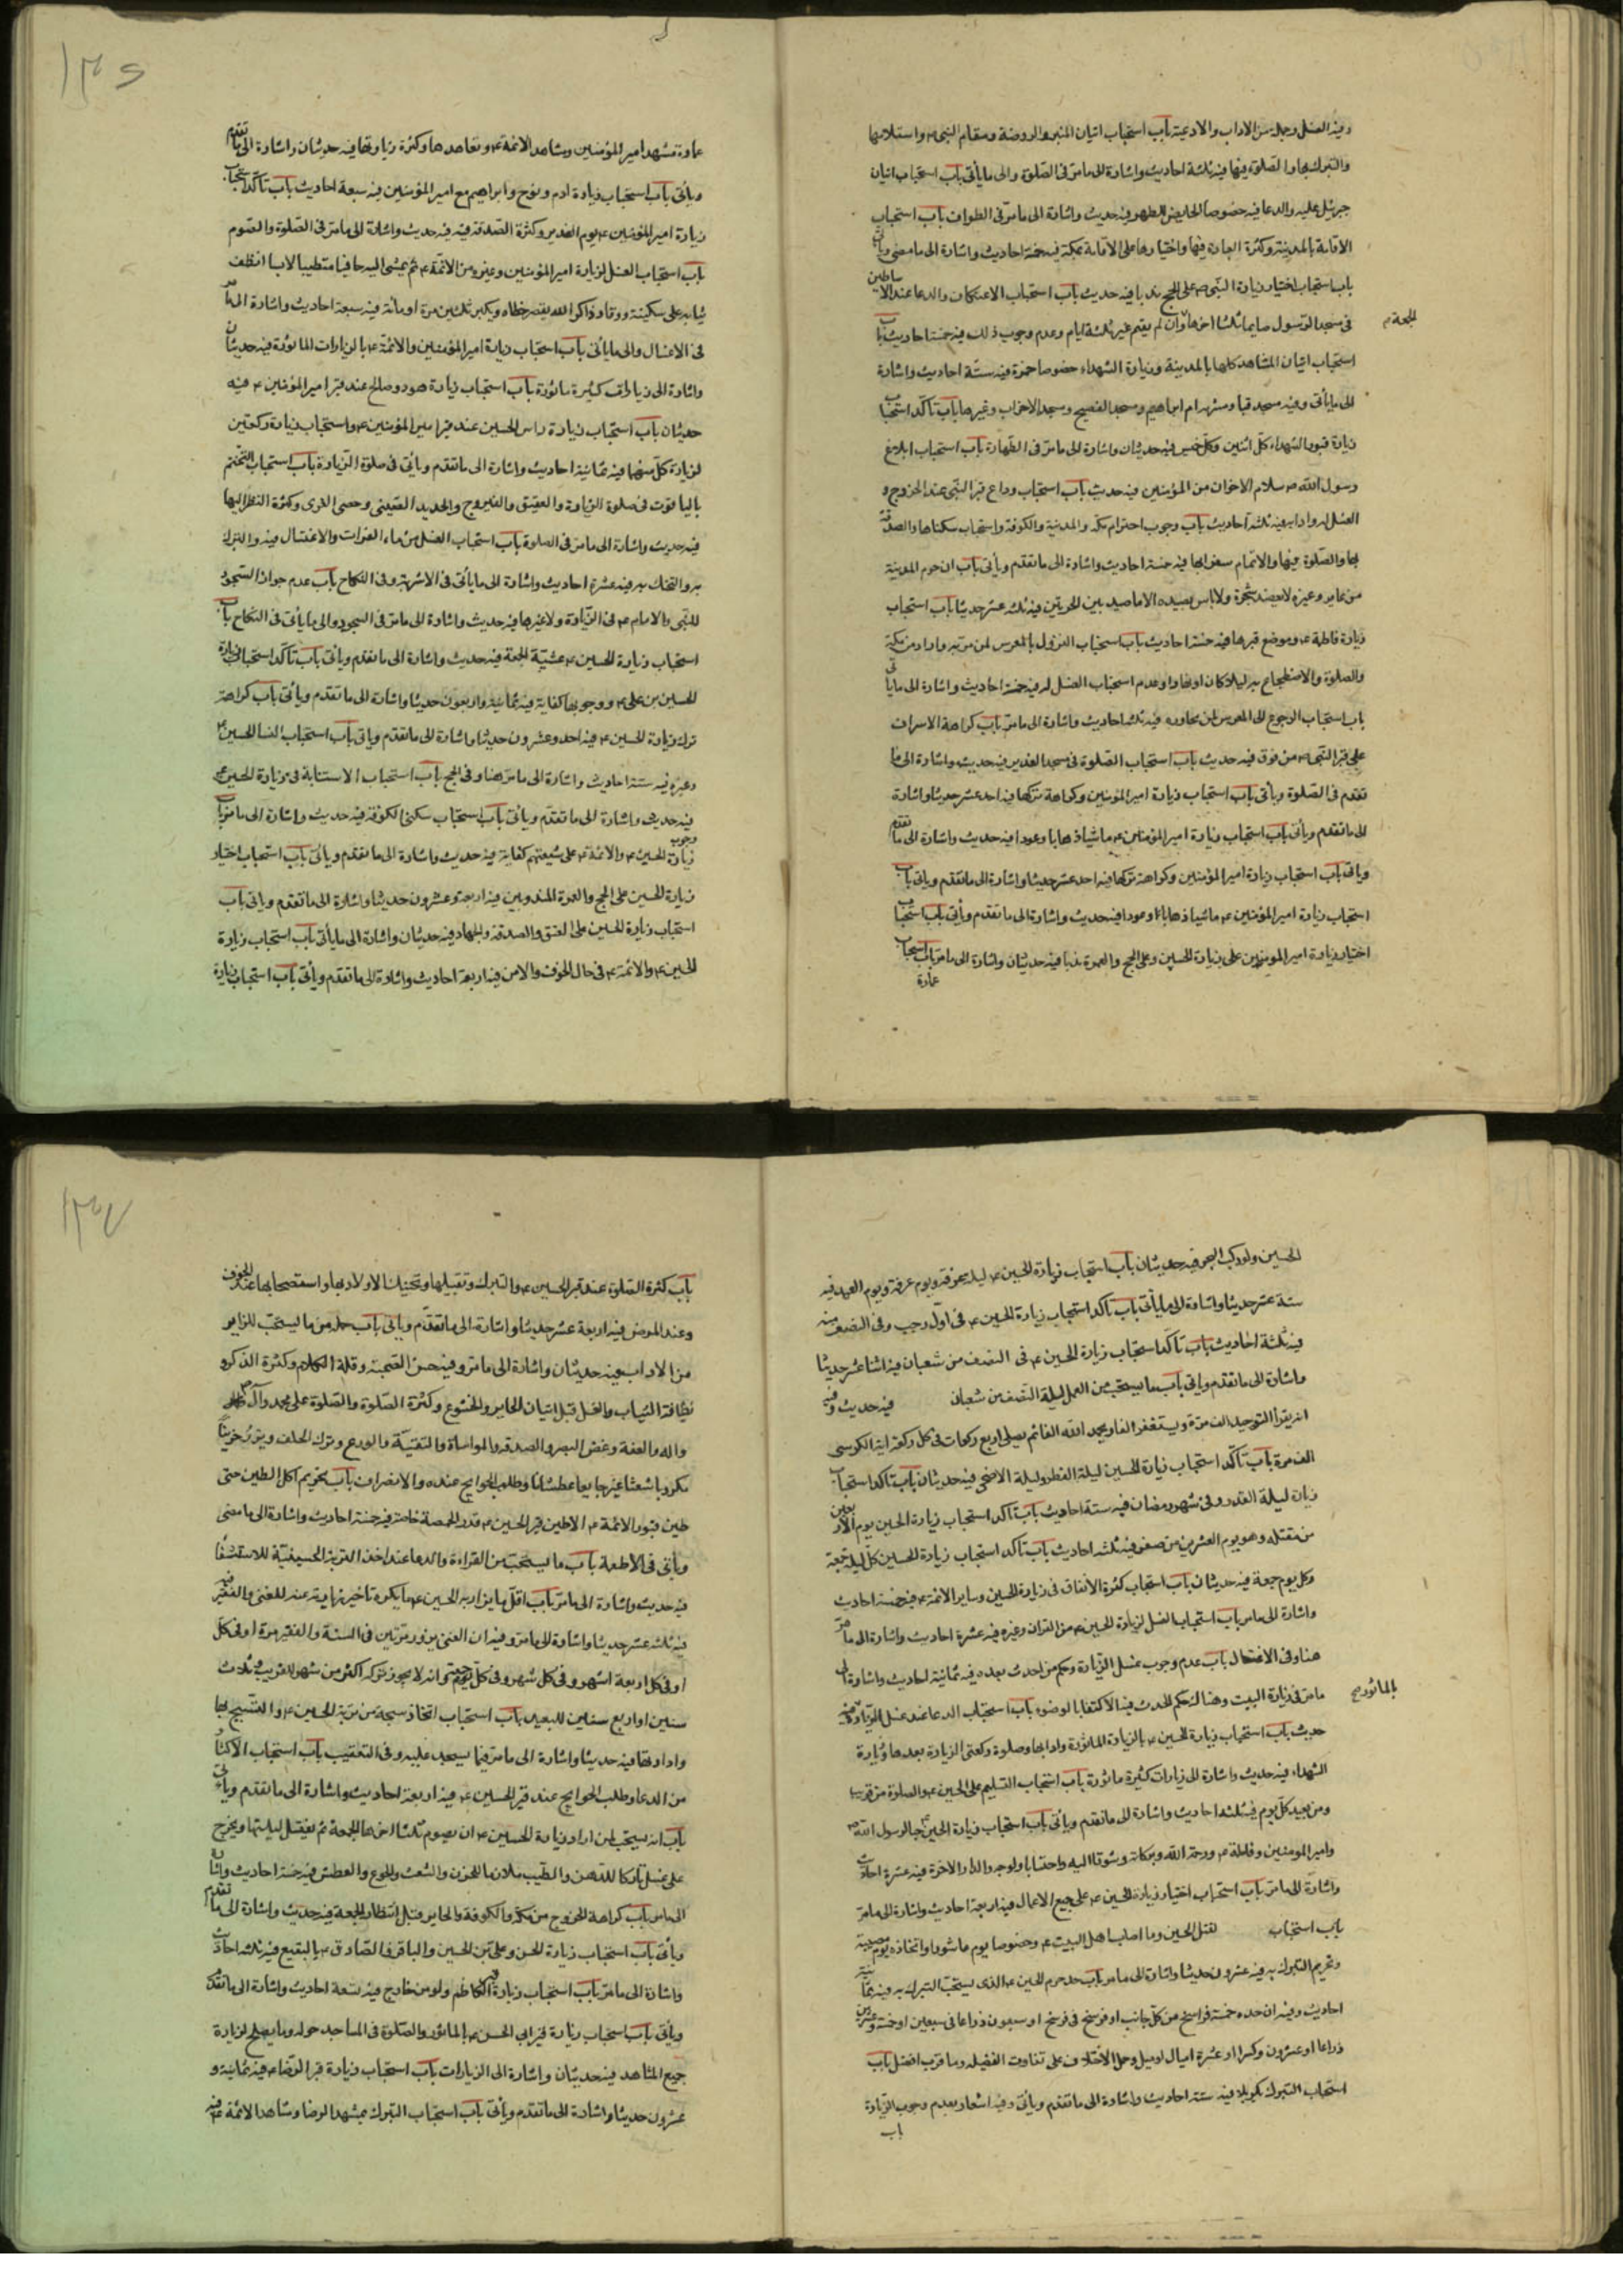 وفيه الغسل وجملة من الاداب والادعية باب استحباب اتيان المنبر والروضة ومقام النبى ص واستلامها
والتبرك بها والصلوة فيها فيه ثلثة احاديث واشارة الى ما مر فى الصلوة والى ما يأتى باب استحباب اتيان
جبرئيل عليه والدعا فيه خصوصا الحايض للطهر فيه حديث واشارة الى ما مر فى الطواف باب استحباب
الاقامة بالمدينة وكثرة العبادة فيها واختيارها على الاقامة بمكة فيه خمسة احاديث واشارة الى ما مضى ويأتى
باب استحباب اختيار زيارة النبى ص على الحج ندبا فيه حديث باب استحباب الاعتكاف والدعا عند الاساطين
فى مسجد الرسول صايما ثلثا اخرها وان لم يقم غير ثلثة ايام وعدم وجوب ذلك فيه خمسة احاديث باب
الجمعة
استحباب اتيان المشاهد كلها بالمدينة وزيارة الشهداء خصوصا حمزة فيه ستة احاديث واشارة
الى ما يأتى وفيه مسجد قبا ومشربة ام ابراهيم ومسجد الفضيح ومسجد الاحزاب وغيرها باب تأكد استحباب
زيارة قبور الشهداء كل اثنين وكل خميس فيه حديثان واشارة الى ما مر فى الطهارة باب استحباب ابلاغ
رسول الله ص سلام الاخوان من المؤمنين فيه حديث باب استحباب وداع قبر النبى عند الخروج و
الغسل له وادابه فيه ثلثة احاديث باب وجوب احترام مكة والمدينة والكوفة واستحباب سكناها والصدقة
بها والصلوة فيها والاتمام سفرا بها فيه خمسة احاديث واشارة الى ما تقدم ويأتى باب ان حرم المدينة
من عاير وعيره لا يعضد شجره ولا باس بصيده الا ما صيد بين الحرتين فيه ثلثة عشر حديثا باب استحباب
زيارة فاطمة ع وموضع قبرها فيه خمسة احاديث باب استحباب النزول بالمعرس لمن مر به واراد من مكة
والصلوة والاضطجاع به ليلا كان او نهارا وعدم استحباب الغسل له فيه خمسة احاديث واشارة الى ما يأتى
باب استحباب الرجوع الى المعرس لمن تجاوزه فيه ثلثة احاديث واشارة الى ما مر باب كراهة الاسراف
على قبر النبى ص من فوق فيه حديث باب استحباب الصلوة فى مسجد الغدير فيه حديث واشارة الى ما
تقدم فى الصلوة ويأتى باب استحباب زيارة امير المؤمنين وكراهة تركها فيه احد عشر حديثا واشارة
الى ما تقدم ويأتى باب استحباب زيارة امير المؤمنين ع ماشيا ذهابا وعودا فيه حديث واشارة الى ما تقدم
وياتى باب استحباب زيارة امير المؤمنين وكراهة تركها فيه احد عشر حديثا واشارة الى ما تقدم وياتى باب
استحباب زيارة امير المؤمنين ع ماشيا ذهابا وعودا فيه حديث واشارة الى ما تقدم ويأتى باب استحباب
اختيار زيارة امير المومنين على زيارة الحسين وعلى الحج والعمرة ندبا فيه حديثان واشارة الى ما مر باب استحباب
عمارة
١٣٥
عمارة مشهد امير المؤمنين ومشاهد الائمة ع وتعاهدها وكثرة زيارتها فيه حديثان واشارة الى ما تقدم
ويأتى باب استحباب زيارة ادم ونوح وابراهيم مع امير المؤمنين فيه سبعة احاديث باب تأكد استحباب
زيارة امير المؤمنين ع يوم الغدير وكثرة الصدقة فيه فيه حديث واشارة الى ما مر فى الصلوة والصوم
باب استحباب الغسل لزيارة امير المؤمنين وغيره من الائمة ع ثم يمشى اليه حافيا متطيبا لابسا انظف
ثيابه على سكينة ووقار ذاكرا لله يقصر خطاه ويكبر ثلثين مرة او مائة فيه سبعة احاديث واشارة الى ما مر
فى الاغسال والى ما يأتى باب استحباب زيارة امير المؤمنين والائمة ع بالزيارات الماثورة فيه حديثان
واشارة الى زيارات كثيرة ماثورة باب استحباب زيارة هود وصالح عند قبر امير المؤمنين ع فيه
حديثان باب استحباب زيارة راس الحسين عند قبر امير المؤمنين ع واستحباب زيارة ركعتين
لزيارة كل منهما فيه ثمانية احاديث واشارة الى ما تقدم ويأتى فى صلوة الزيارة باب استحباب التختم
بالياقوت فى صلوة الزيارة والعقيق والفيروزج والحديد الصينى وحصى الغرى وكثرة النظر اليها
فيه حديث واشارة الى ما مر فى الصلوة باب استحباب الغسل من ماء الفرات والاغتسال فيه والتبرك
به والتحنك به فيه عشرة احاديث واشارة الى ما يأتى فى الاشربة وفى النكاح باب عدم جواز السجود
للنبى والامام ع فى الزيارة ولا غيرها فيه حديث واشارة الى ما مر فى السجود والى ما يأتى فى النكاح باب
استحباب زيارة الحسين ع عشية الجمعة فيه حديث واشارة الى ما تقدم ويأتى باب تأكد استحباب زيارة
الحسين بن على ع ووجوبها كفاية فيه ثمانية واربعون حديثا واشارة الى ما تقدم ويأتى باب كراهة
ترك زيارة الحسين ع فيه احد وعشرون حديثا واشارة الى ما تقدم وياتى باب استحباب النساء الحسين ع
وغيره فيه ستة احاديث واشارة الى ما مر هنا وفى الحج باب استحباب الاستنابة فى زيارة الحسين ع
فيه حديث واشارة الى ما تقدم ويأتى باب استحباب سكنى الكوفة فيه حديث واشارة الى ما مر باب وجوب
زيارة الحسين ع والائمة ع على شيعتهم كفاية فيه حديث واشارة الى ما تقدم ويأتى باب استحباب اختيار
زيارة الحسين على الحج والعمرة المندوبين فيه اربعة وعشرون حديثا واشارة الى ما تقدم وياتى باب
استحباب زيارة الحسين على العتق والصدقة والجهاد فيه حديثان واشارة الى ما يأتى باب استحباب زيارة
الحسين ع والائمة ع فى حال الخوف والامن فيه اربعة احاديث واشارة الى ما تقدم ويأتى باب استحباب زيارة
الحسين ولو ركب البحر فيه حديثان باب استحباب زيارة الحسين ع ليلة عرفة ويوم عرفة ويوم العيد فيه
ستة عشر حديثا واشارة الى ما يأتى باب تأكد استحباب زيارة الحسين ع فى اول رجب وفى النصف منه
فيه ثلثة احاديث باب تأكد استحباب زيارة الحسين ع فى النصف من شعبان فيه اثنا عشر حديثا
واشارة الى ما تقدم وياتى باب ما يستحب من العمل ليلة النصف من شعبان فيه حديث وفيه
انه يقرأ التوحيد الف مرة ويستغفر الفا ويحمد الله الفا ثم يصلى اربع ركعات فى كل ركعة اية الكرسى
الف مرة باب تأكد استحباب زيارة الحسين ليلة الفطر وليلة الاضحى فيه حديثان باب تأكد استحباب
زيارة ليلة القدر وفى شهر رمضان فيه ستة احاديث باب تأكد استحباب زيارة الحسين يوم الاربعين
من مقتله وهو يوم العشرين من صفر فيه ثلثة احاديث باب تأكد استحباب زيارة الحسين كل ليلة جمعة
وكل يوم جمعة فيه حديثان باب استحباب كثرة الانفاق فى زيارة الحسين وساير الائمة ع فيه خمسة احاديث
واشارة الى ما مر باب استحباب الغسل لزيارة الحسين ع من الفرات وغيره فيه عشرة احاديث واشارة الى ما مر
هنا وفى الاغتسال باب عدم وجوب غسل الزيارة وحكم من احدث بعده فيه ثمانية احاديث واشارة الى
ما مر فى زيارة البيت وهناك حكم المحدث فيه الاكتفا بالوضوء باب استحباب الدعا عند غسل الزيارة فيه
بالماثور
حديث باب استحباب زيارة الحسين ع بالزيارة الماثورة وادابها وصلوة ركعتى الزيارة بعدها وزيارة
الشهداء فيه حديث واشارة الى زيارات كثيرة ماثورة باب استحباب التسليم على الحسين ع والصلوة من قريب
ومن بعيد كل يوم فيه ثلثة احاديث واشارة الى ما تقدم ويأتى باب استحباب زيارة الحسين ع حبا لرسول الله ص
وامير المومنين وفاطمة ع ورحمة الله وبركاته وشوقا اليه واحتسابا ولوجه والدار الاخرة فيه عشرة احاديث
واشارة الى ما مر باب استحباب اختيار زيارة الحسين ع على جميع الاعمال فيه اربعة احاديث واشارة الى ما مر
باب استحباب لقتل الحسين وما اصاب اهل البيت ع وخصوصا يوم عاشورا واتخاذه يوم مصيبة
وتحريم التبرك به فيه عشرون حديثا واشارة الى ما مر باب حد حرم الحسين ع الذى يستحب التبرك به فيه ثمانية
احاديث وفيه ان حده خمسة فراسخ من كل جانب او فرسخ فى فرسخ او سبعون ذراعا فى سبعين او خمسة وعشرين
ذراعا او عشرون وكسرا او عشرة اميال او ميل وحمل الاختلاف على تفاوت الفضيلة وما قرب افضل باب
استحباب التبرك بكربلا فيه ستة احاديث واشارة الى ما تقدم ويأتى وفيه اشعار بعدم وجوب الزيارة
باب
باب كثرة الصلوة عند قبر الحسين ع والتبرك وتقبيلها وتحنيك الاولاد بها واستصحابها عند الخوف
وعند المرض فيه اربعة عشر حديثا واشارة الى ما تقدم وياتى باب جملة من ما يستحب للزاير
من الاداب فيه حديثان واشارة الى ما مر وفيه حسن الصحبة وقلة الكلام وكثرة الذكر و
نظافة الثياب والغسل قبل اتيان الحاير والخشوع وكثرة الصلوة والصلوة على محمد وآل
واله والعفة وغض البصر والصدقة والمواساة والتقية والورع وترك الحلف ويزور حزينا
مكروبا شعثا غبرا جايعا عطشانا وطلب الحوايج عنده والانصراف باب تحريم اكل الطين حتى
طين قبور الائمة ع الا طين قبر الحسين ع قدر الحمصة خاصة فيه خمسة احاديث واشارة الى ما مضى
ويأتى فى الاطعمة باب ما يستحب من القراءة والدعا عند اخذ التربة الحسينية للاستشفا
فيه حديث واشارة الى ما مر باب اقل ما يزار به الحسين ع ما يكره تأخير زيارته عنه للغنى والفقير
فيه ثلثة عشر حديثا واشارة الى ما مر وفيه ان الغنى يزور مرتين فى السنة والفقير مرة او فى كل
او فى كل اربعة اشهر وفى كل شهر وفى كل يوم جمعة وانه لا يجوز تركه اكثر من شهر للقريب وثلاث
سنين او اربع سنين للبعيد باب استحباب اتخاذ سبحة من تربة الحسين ع والتسبيح بها
وادارتها فيه حديثا واشارة الى ما مر فيما يسجد عليه وفى التعقيب باب استحباب الاكثار
من الدعا وطلب الحوايج عند قبر الحسين ع فيه اربعة احاديث واشارة الى ما تقدم ويأتى
باب انه يستحب لمن اراد زيارة الحسين ع ان يصوم ثلثا اخرها الجمعة ثم يغتسل ليلتها ويخرج
على غسل تاركا للدهن والطيب ملازما للحزن والشعث والجوع والعطش فيه خمسة احاديث واشارة
الى ما مر باب كراهة الخروج من مكة والكوفة والحاير قبل انتظار الجمعة فيه حديث واشارة الى ما تقدم
ويأتى باب استحباب زيارة الحسن وعلى بن الحسين والباقر والصادق ع بالبقيع فيه ثلثة احاديث
واشارة الى ما مر باب استحباب زيارة قبر الكاظم ولو من خارج فيه تسعة احاديث واشارة الى ما تقدم
ويأتى باب استحباب زيارة قبر ابى الحسن ع بالماثور والصلوة فى المساجد حوله وما يصلح لزيارة
جميع المشاهد فيه حديثان واشارة الى الزيارات باب استحباب زيارة قبر الرضا ع فيه ثمانية و
عشرون حديثا واشارة الى ما تقدم ويأتى باب استحباب التبرك بمشهد الرضا ومشاهد الائمة ع فيه